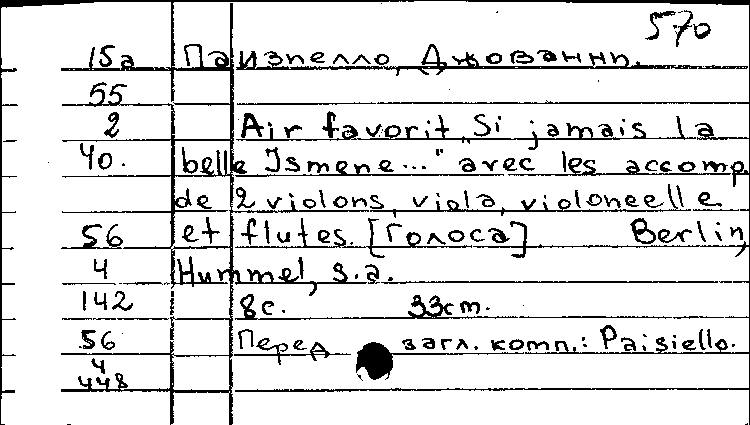 570
15а Паизпелло, Джованни.
55
2 Air favorit „Si jamais la
40. belle Ismene..." avec les accomp.
de 2 violons, viola, violoncelle
56 et flutes. [Голоса] Berlin,
4 Hummel, s.a.
142 8с. 33cm.
56 Перед загл. комп.: Paisiello.
4
448